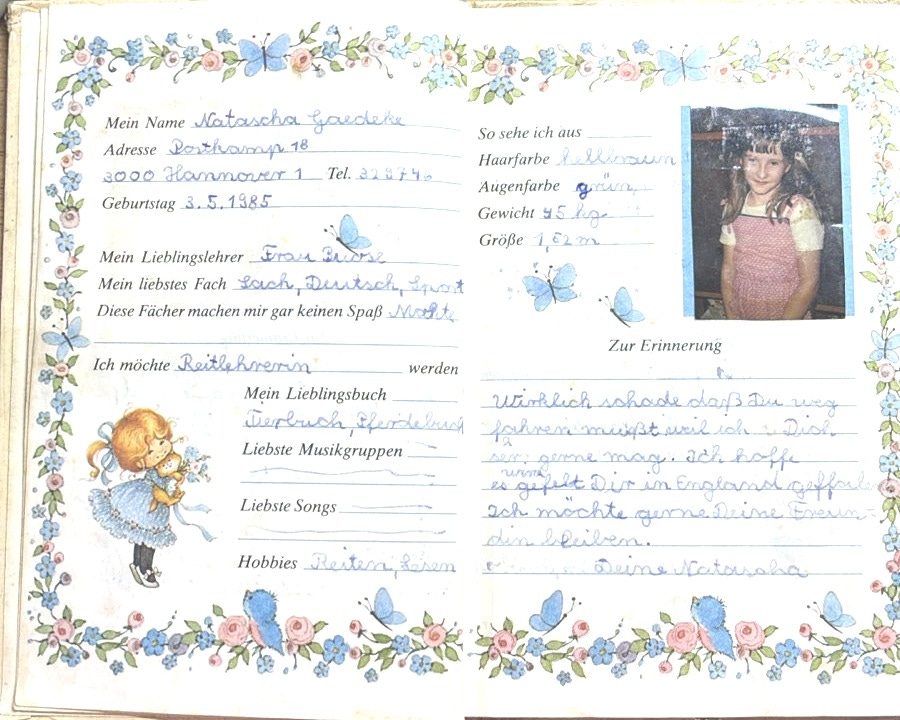 Mein Name Natascha Gaedeke
Adresse Posthamp 18
3000 Hannover 1 Tel.
Geburtstag 3.5.1985
Mein Lieblingslehrer Frau
Mein liebstes Fach Sach, Deutsch, Sport
Diese Fächer machen mir gar keinen Spaß Mathe
Ich möchte Reitlehrerin werden
Mein Lieblingsbuch
Tierbuch, Pferdebuch
Liebste Musikgruppen
Liebste Songs
Hobbies Reiten, Lesen
So sehe ich aus
Haarfarbe hellbraun
Augenfarbe grün
Gewicht 45 kg
Größe 1,52 m
Zur Erinnerung
Wirklich schade daß Du weg
fahren mußt weil ich Dich
ser gerne mag. Ich hoffe
es gefelt Dir in England
Ich möchte gerne Deine Freun-
din bleiben.
Deine Natascha